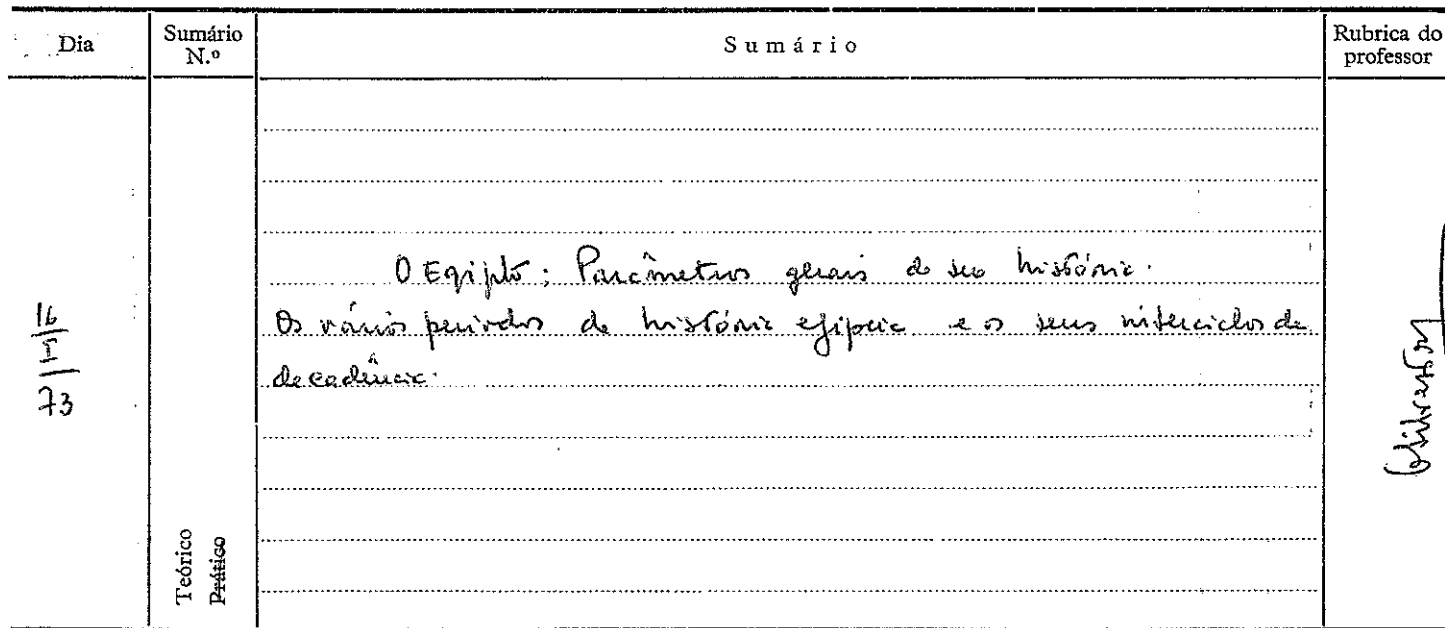 Dia
Sumário
N.º
Sumário
Rubrica do
professor
16
I
73
O Egipto; Parâmetros gerais da sua história.
Os vários períodos da história egípcia e os seus interciclos de
decadência.
Teórico
Prático